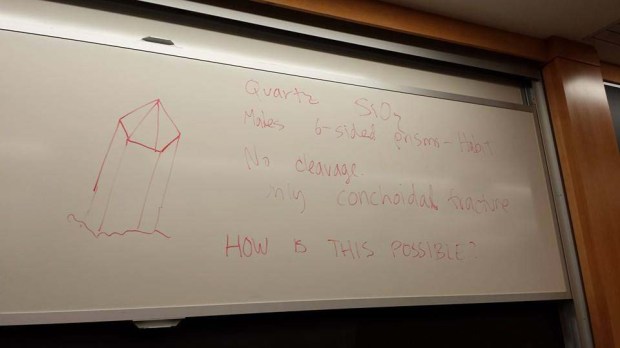 Quartz SiO2
Makes 6-sided prisms - Habit
No cleavage
only conchoidal fracture
HOW IS THIS POSSIBLE?